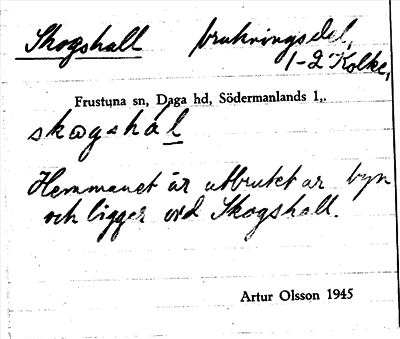 Skogshall brukningsdel,
1-2 Kolke,
Frustuna sn, Daga hd, Södermanlands l,.
skogshal
Hemmanet är utbrutet ur byn
och ligger vid Skogshall.
Artur Olsson 1945